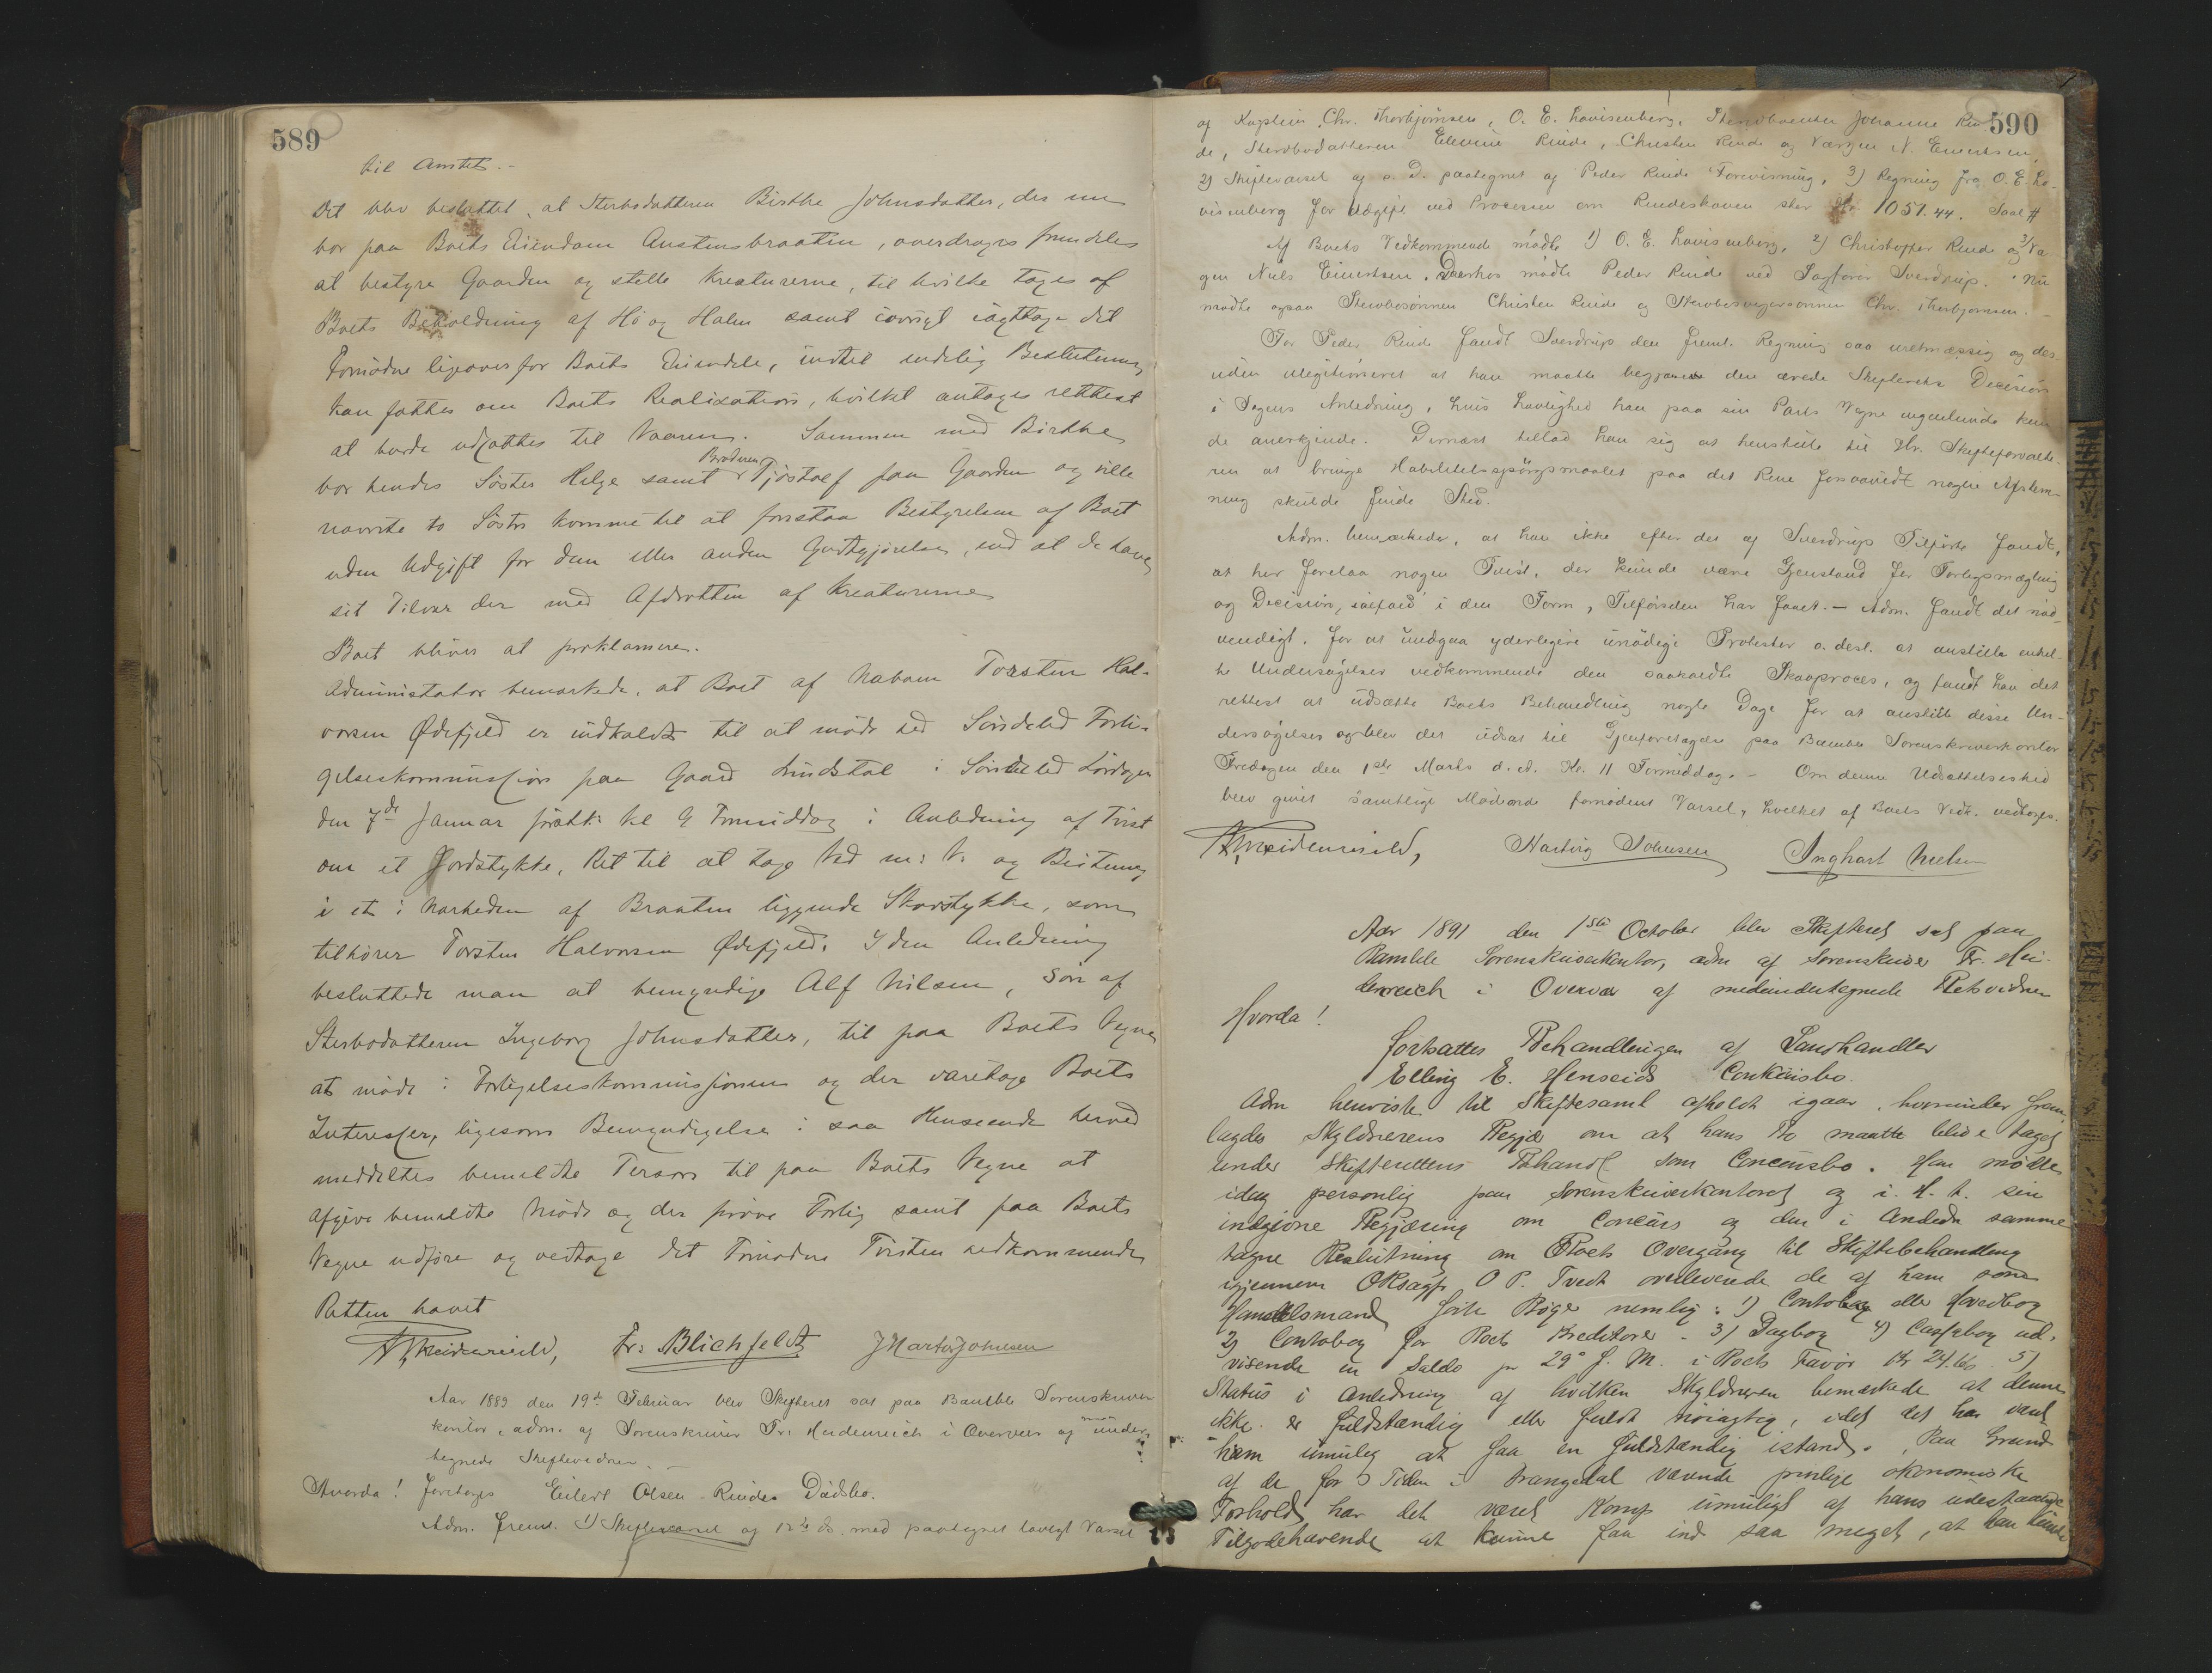 589
til Amtet.-
Det blev besluttet, at Sterbodatteren Birthe Johnsdatter, der nu
bor paa Boets Eiendom Austensbraaten, overdrages fremdeles
at bestyre Gaarden og stelle Kreaturerne, til hvilke tages af
Boets Beholdning af Hø og Halm samt iøvrigt iagttage det
Fornødne ligeoverfor Boets Eiendele, indtil endelig Beslutning
kan fattes om Boets Realisation, hvilket antages rettest
at burde udsættes til Vaaren. Sammen med Birthe
bor hendes Søster Helge samt Broderen Tjøstolf paa Gaarden og ville
nævnte to Søstre komme til at forestaa Bestyrelsen af Boet
uden Udgift for dem eller anden Godtgjørelse, end at de have
sit Tilvær der med Afdrotten af Kreaturerne
Boet bliver at proklamere.
Administrator bemærkede, at Boet af Naboen Torsten Hal-
vorsen Ødefjeld er indkaldt til at møde ved Søndeled Forli-
gelseskommission paa Gaard Lindstøl i Søndeled Lørdagen
den 7de Januar førstk: Kl 9 Formiddag i Anledning af Tvist
om et Jordstykke, Ret til at tage Ved m: V. og Beitning
i et i Nærheden af Braaten liggende Skovstykke, som
tilhører Torsten Halvorsen Ødefjeld. I den Anledning
besluttede man at bemyndige Alf Nilsen, Søn af
Sterbodatteren Ingeborg Johnsdatter, til paa Boets Vegne
at møde i Forligelseskommissionen og der varetage Boets
Interesser, ligesom Bemyndigelse i saa Henseende herved
meddeltes bemeldte Person til paa Boets Vegne at
afgive bemeldte Møde og der prøve Forlig samt paa Boets
Vegne udføre og vedtage det Fornødne Tvisten vedkommende
Retten hævet
Fr: Blichfeldt J Martin Johnsen
Aar 1889 den 19de Februar blev Skifteret sat paa Bamble Sorenskriver
kontor, adm. af Sorenskriver Fr: Heidenreich i Overvær af med under
tegnede Skiftevidner. -
Hvorda! foretages Eilert Olsen Rindes Dødsbo.
Adm. freml. 1) Skiftevarsel af 12te ds. med paategnet lovligt Varsel
590
af Kaptein Chr. Thorbjørnsen, O. E. Lovisenberg, Sterboenken Johanne Rin
de, Sterbodatteren Elevine Rinde, Christen Rinde og Værgen N. Einertsen,
2) Skiftevarsel af s. D. paategnet af Peder Rinde Forevisning, 3) Regning fra O. E. Lo-
visenberg for Udgift ved Processen om Rindeskoven stor Kr 1051.44. Saal #
Af Boets Vedkommende mødte 1) O. E. Lovisenberg, 2) Christopher Rinde og 3) Væ
gen Niels Einertsen. Derhos mødte Peder Rinde ved Sagfører Sverdrup. Nu
mødte ogsaa Sterbosønnen Christen Rinde og Sterbosvigersønnen Chr. Thorbjørnsen. -
For Peder Rinde fandt Sverdrup den freml. Regning saa uretmæssig og des-
uden ulegitimeret at han maatte begjære den ærede Skifterets Decision
i Sagens Anledning, hvis Lovlighed han paa sin Parts Vegne ingenlunde kun
de anerkjende. Dernæst tillod han sig at henstille til Hr. Skifteforvalte-
ren at bringe Habilitetsspørgsmaalet paa det Rene forsaavidt nogen Afstem-
ning skulde finde Sted.
Adm. bemærkede, at han ikke efter det af Sverdrup Tilførte fandt,
at her forelaa nogen Tvist, der kunde være Gjenstand for Forligsmægling
og Decision, ialfald i den Form, Tilførselen har faaet. - Adm. fandt det nød-
vendigt, for at undgaa yderligere unødige Protester o. desl. at anstille enkel-
te Undersøgelser vedkommende den saakaldte Skovproces, og fandt han det
rettest at udsætte Boets Behandling nogle Dage for at anstille disse Un-
dersøgelser og blev det udsat til Gjenforetagelse paa Bamble Sorenskriverkontor
Fredagen den 1ste Marts d. A. Kl. 11 Formiddag. - Om denne Udsættelsestid
blev givet samtlige Mødende fornødent Varsel, hvilket af Boets Vedk. vedtoges.
Hartvig Johnsen Inghart Nielsen
Aar 1891 den 1ste October blev Skifteret sat paa
Bamble Sorenskriverkontor, adm af Sorenskriver Fr. Hei-
denreich i Overvær af medundertegnede Retsvidner
Hvorda!
fortsattes Behandlingen af Landhandler
Elling E. Henseids Conkursbo.
Adm henviste til Skiftesaml afholdt igaar, hvorunder frem-
lagdes Skyldnerens Begjær om at hans Bo maatte blive taget
under Skifterettens Behandl som Concursbo. Han mødte
idag personlig paa Sorenskriverkontoret og i. H. t. sin
indgivne Begjæring om Concurs og den i Anledn samme
tagne Beslutning om Boets Overgang til Skiftebehandling
igjennem ORsagf. O P. Tvedt overleverede de af ham som
Handelsmand førte Bøger nemlig: 1) Contobog eller Hovedbog
2) Contobog for Boets Kreditorer - 3) Dagbog 4) Cassabog ud-
visende en Saldo pr 29de f. M. i Boets Favør Kr 24.66 5)
Status i Anledning af hvilken Skyldneren bemærkede at denne
ikke er fuldstændig eller fuldt nøiagtig, idet det har været
ham umulig at faa en fuldstændig istand. Paa Grund
af de for Tiden i Drangedal værende pinlige økonomiske
Forhold har det været Komp umuligt af hans udestaaende
Tilgodehavende at kunne faa ind saa meget, at han kunde